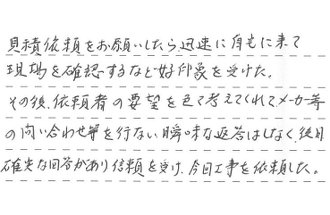 見積依頼をお願いしたら迅速に自宅に来て
現場を確認するなど好印象を受けた。
その後、依頼者の要望を色々考えてくれてメーカー等
の問い合わせ等を行ない曖昧な返答はしなく、後日
確実な回答があり信頼を受け、今回工事を依頼した。